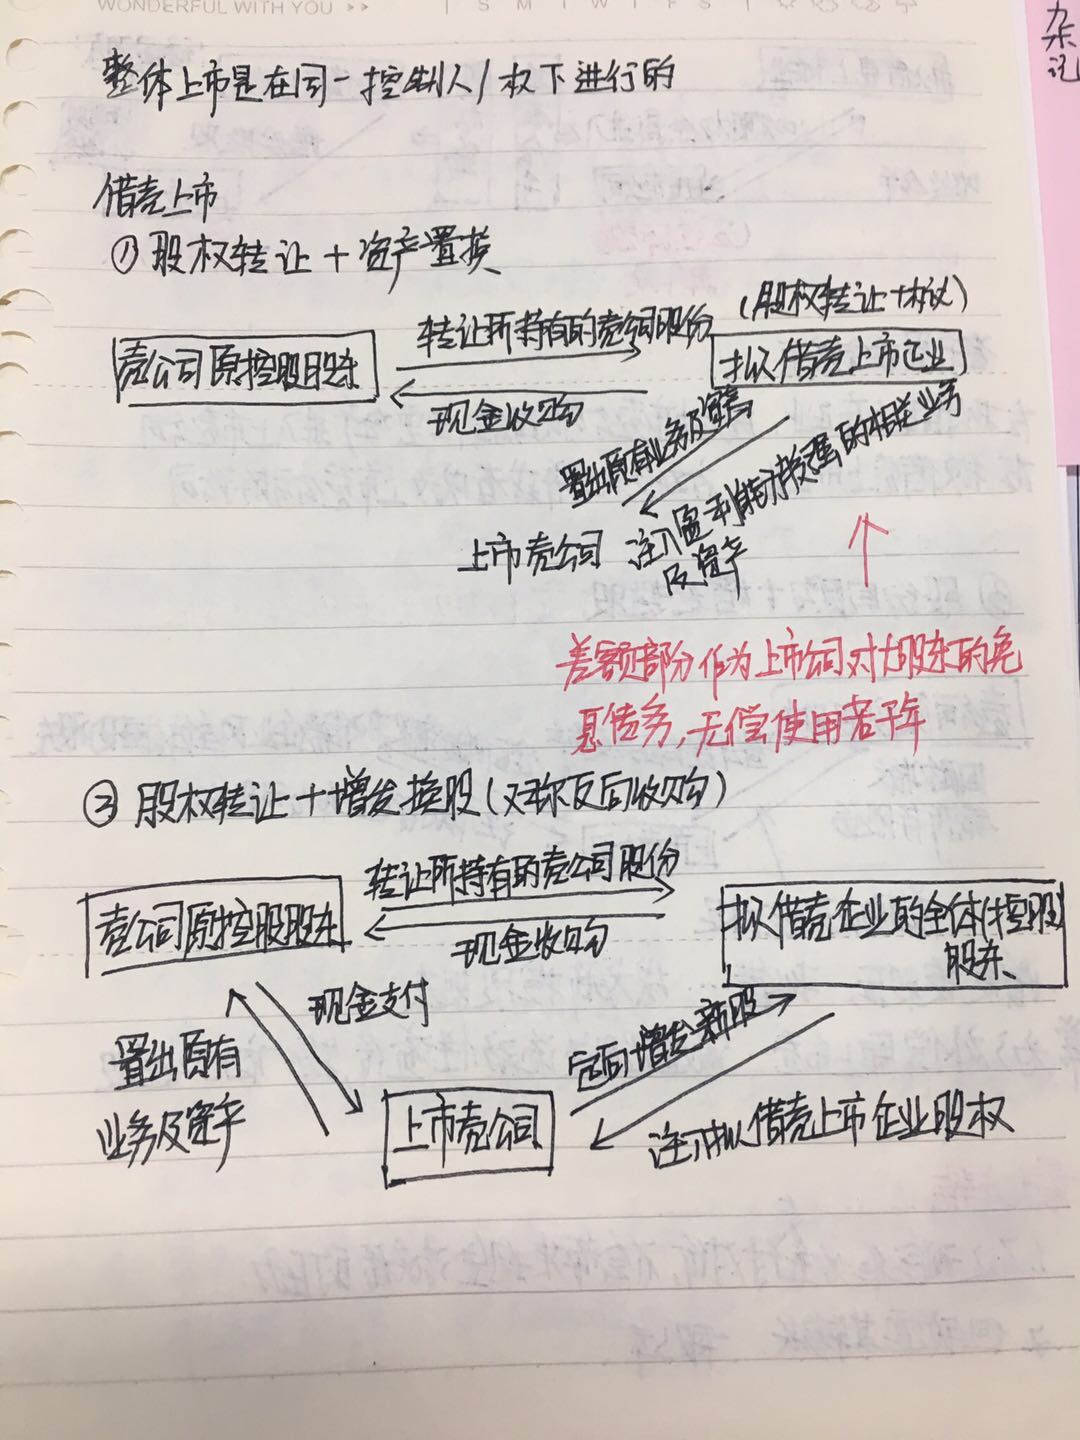 WONDERFUL WITH YOU >>
杂记
整体上市是在同一控制人/权下进行的
借壳上市
① 股权转让+资产置换
转让所持有的壳公司股份
(股权转让+协议)
壳公司原控股股东
拟借壳上市企业
现金收购
置出原有业务及资产
注入盈利能力较强的相关业务
及资产
上市壳公司
差额部分作为上市公司对大股东的免
息债务,无偿使用若干年
② 股权转让+增发换股(又称反向收购)
转让所持有的壳公司股份
壳公司原控股股东
拟借壳企业的全体(控股)
股东
现金收购
现金支付
置出原有
业务及资产
定向增发新股
上市壳公司
注入拟借壳上市企业股权